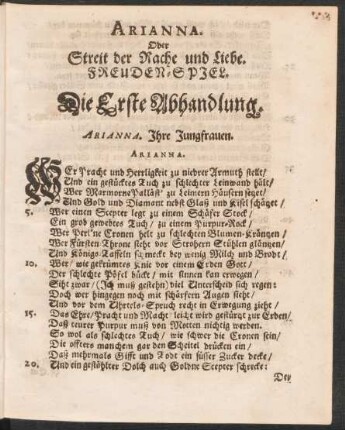 ARIANNA.
Oder
Streit der Rache und Liebe.
FREUDEN-SPIEL.
Die Erste Abhandlung.
ARIANNA. Ihre Jungfrauen.
ARIANNA.
WEr Pracht und Herrligkeit zu niedrer Armuth stellt/
Und ein gestücktes Tuch zu schlechter Leinwand hält/
Wer Marmorne Palläst' zu leimern Häusern setzet/
Und Gold und Diamant nebst Glaß und Kisel schätzet/
5. Wer einen Scepter legt zu einem Schäfer Stock/
Ein grob gewebtes Tuch/ zu einem Purpur-Rock/
Wer Perl'ne Cronen helt zu schlechten Blumen-Kräntzen/
Wer Fürsten-Throne sieht vor Strohern Stühlen gläntzen/
Und Königs-Taffeln schmeckt bey wenig Milch und Brodt/
10. Wer/ wie gekrümmtes Knie vor einem Erden Gott/
Der schlechte Pöfel bückt/ mit sinnen kan erwegen/
Siht zwar/ (Ich muß gestehn) viel Unterscheid sich regen:
Doch wer hingegen noch mit schärfern Augen sieht/
Und vor dem Uhrtels-Spruch recht in Erwegung zieht/
15. Daß Ehre/ Pracht und Macht leicht wird gestürtzt zur Erden/
Daß teurer Purpur muß von Motten nichtig werden.
So wol als schlechtes Tuch/ wie schwer die Cronen sein/
Die offters manchem gar den Scheitel drücken ein/
Daß mehrmals Gifft und Todt ein süsser Zucker decke/
20. Und ein gestöhlter Dolch auch Goldne Scepter schrecke:
Der